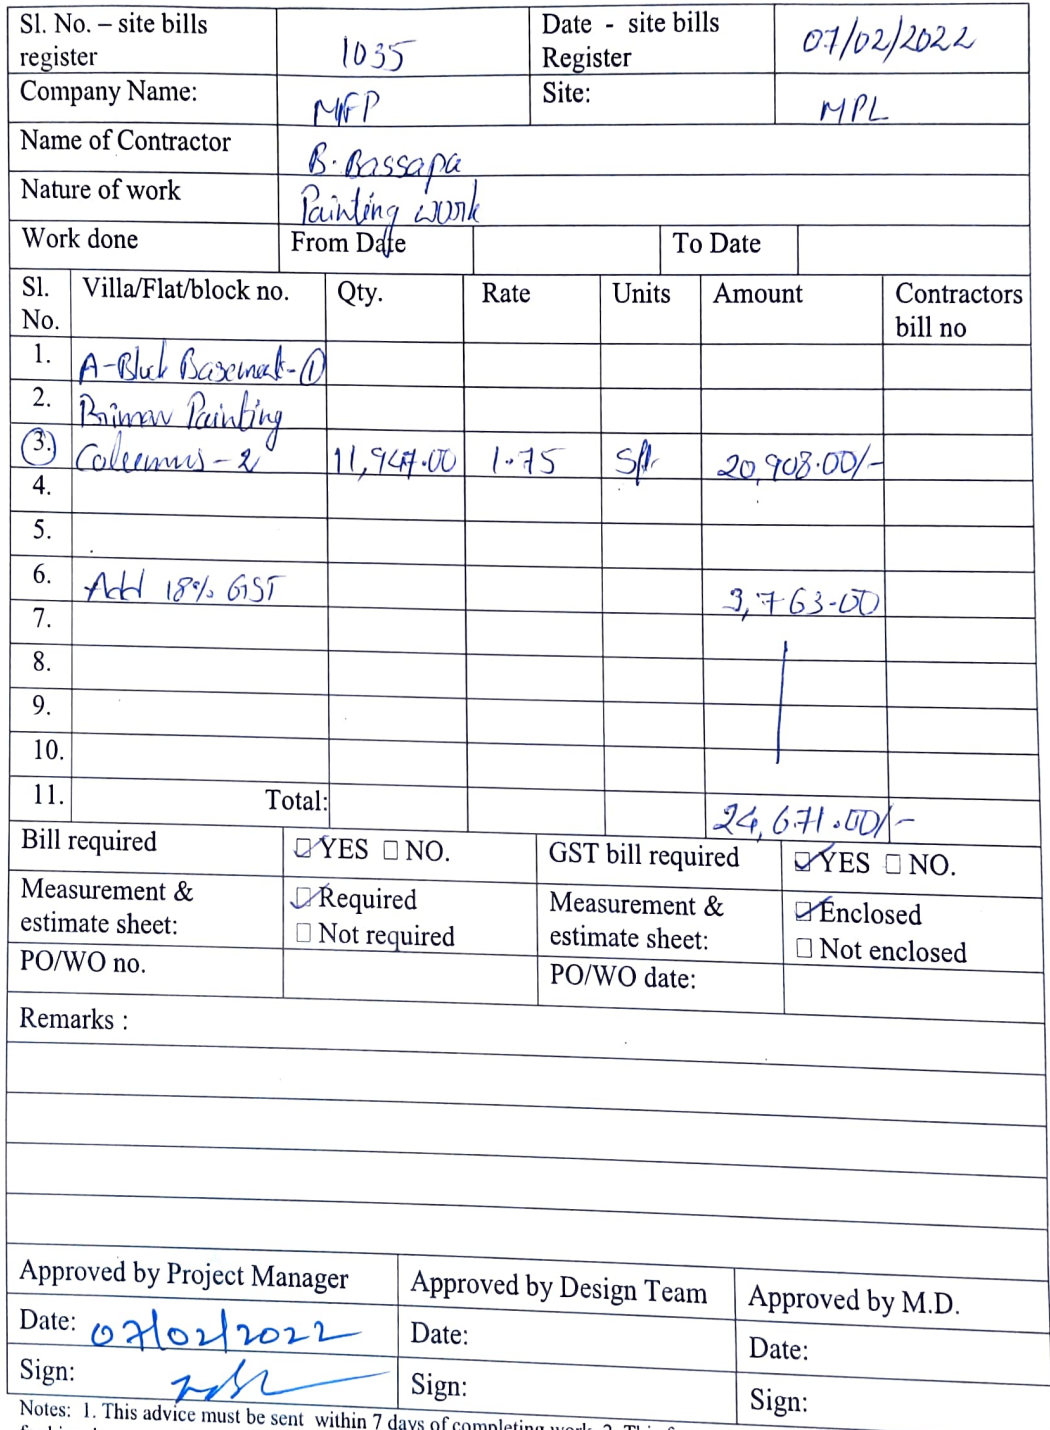 Sl. No. – site bills register 1035 Date - site bills Register 07/02/2022
Company Name: MFP Site: MPL
Name of Contractor B. Bassapa
Nature of work Painting work
Work done From Date To Date
Sl. No. Villa/Flat/block no. Qty. Rate Units Amount Contractors bill no
1. A-Block Basement-①
2. Primer Painting
3. Columns - 2 11,947.00 1.75 Sft 20,908.00/-
4.
5.
6. Add 18% GST 3,763.00
7.
8.
9.
10.
11. Total: 24,671.00/-
Bill required YES NO. GST bill required YES NO.
Measurement & estimate sheet: Required Not required Measurement & estimate sheet: Enclosed Not enclosed
PO/WO no. PO/WO date:
Remarks :
Approved by Project Manager Approved by Design Team Approved by M.D.
Date: 07/02/2022 Date: Date:
Sign: Sign: Sign:
Notes: 1. This advice must be sent within 7 days of completing work. 2. This